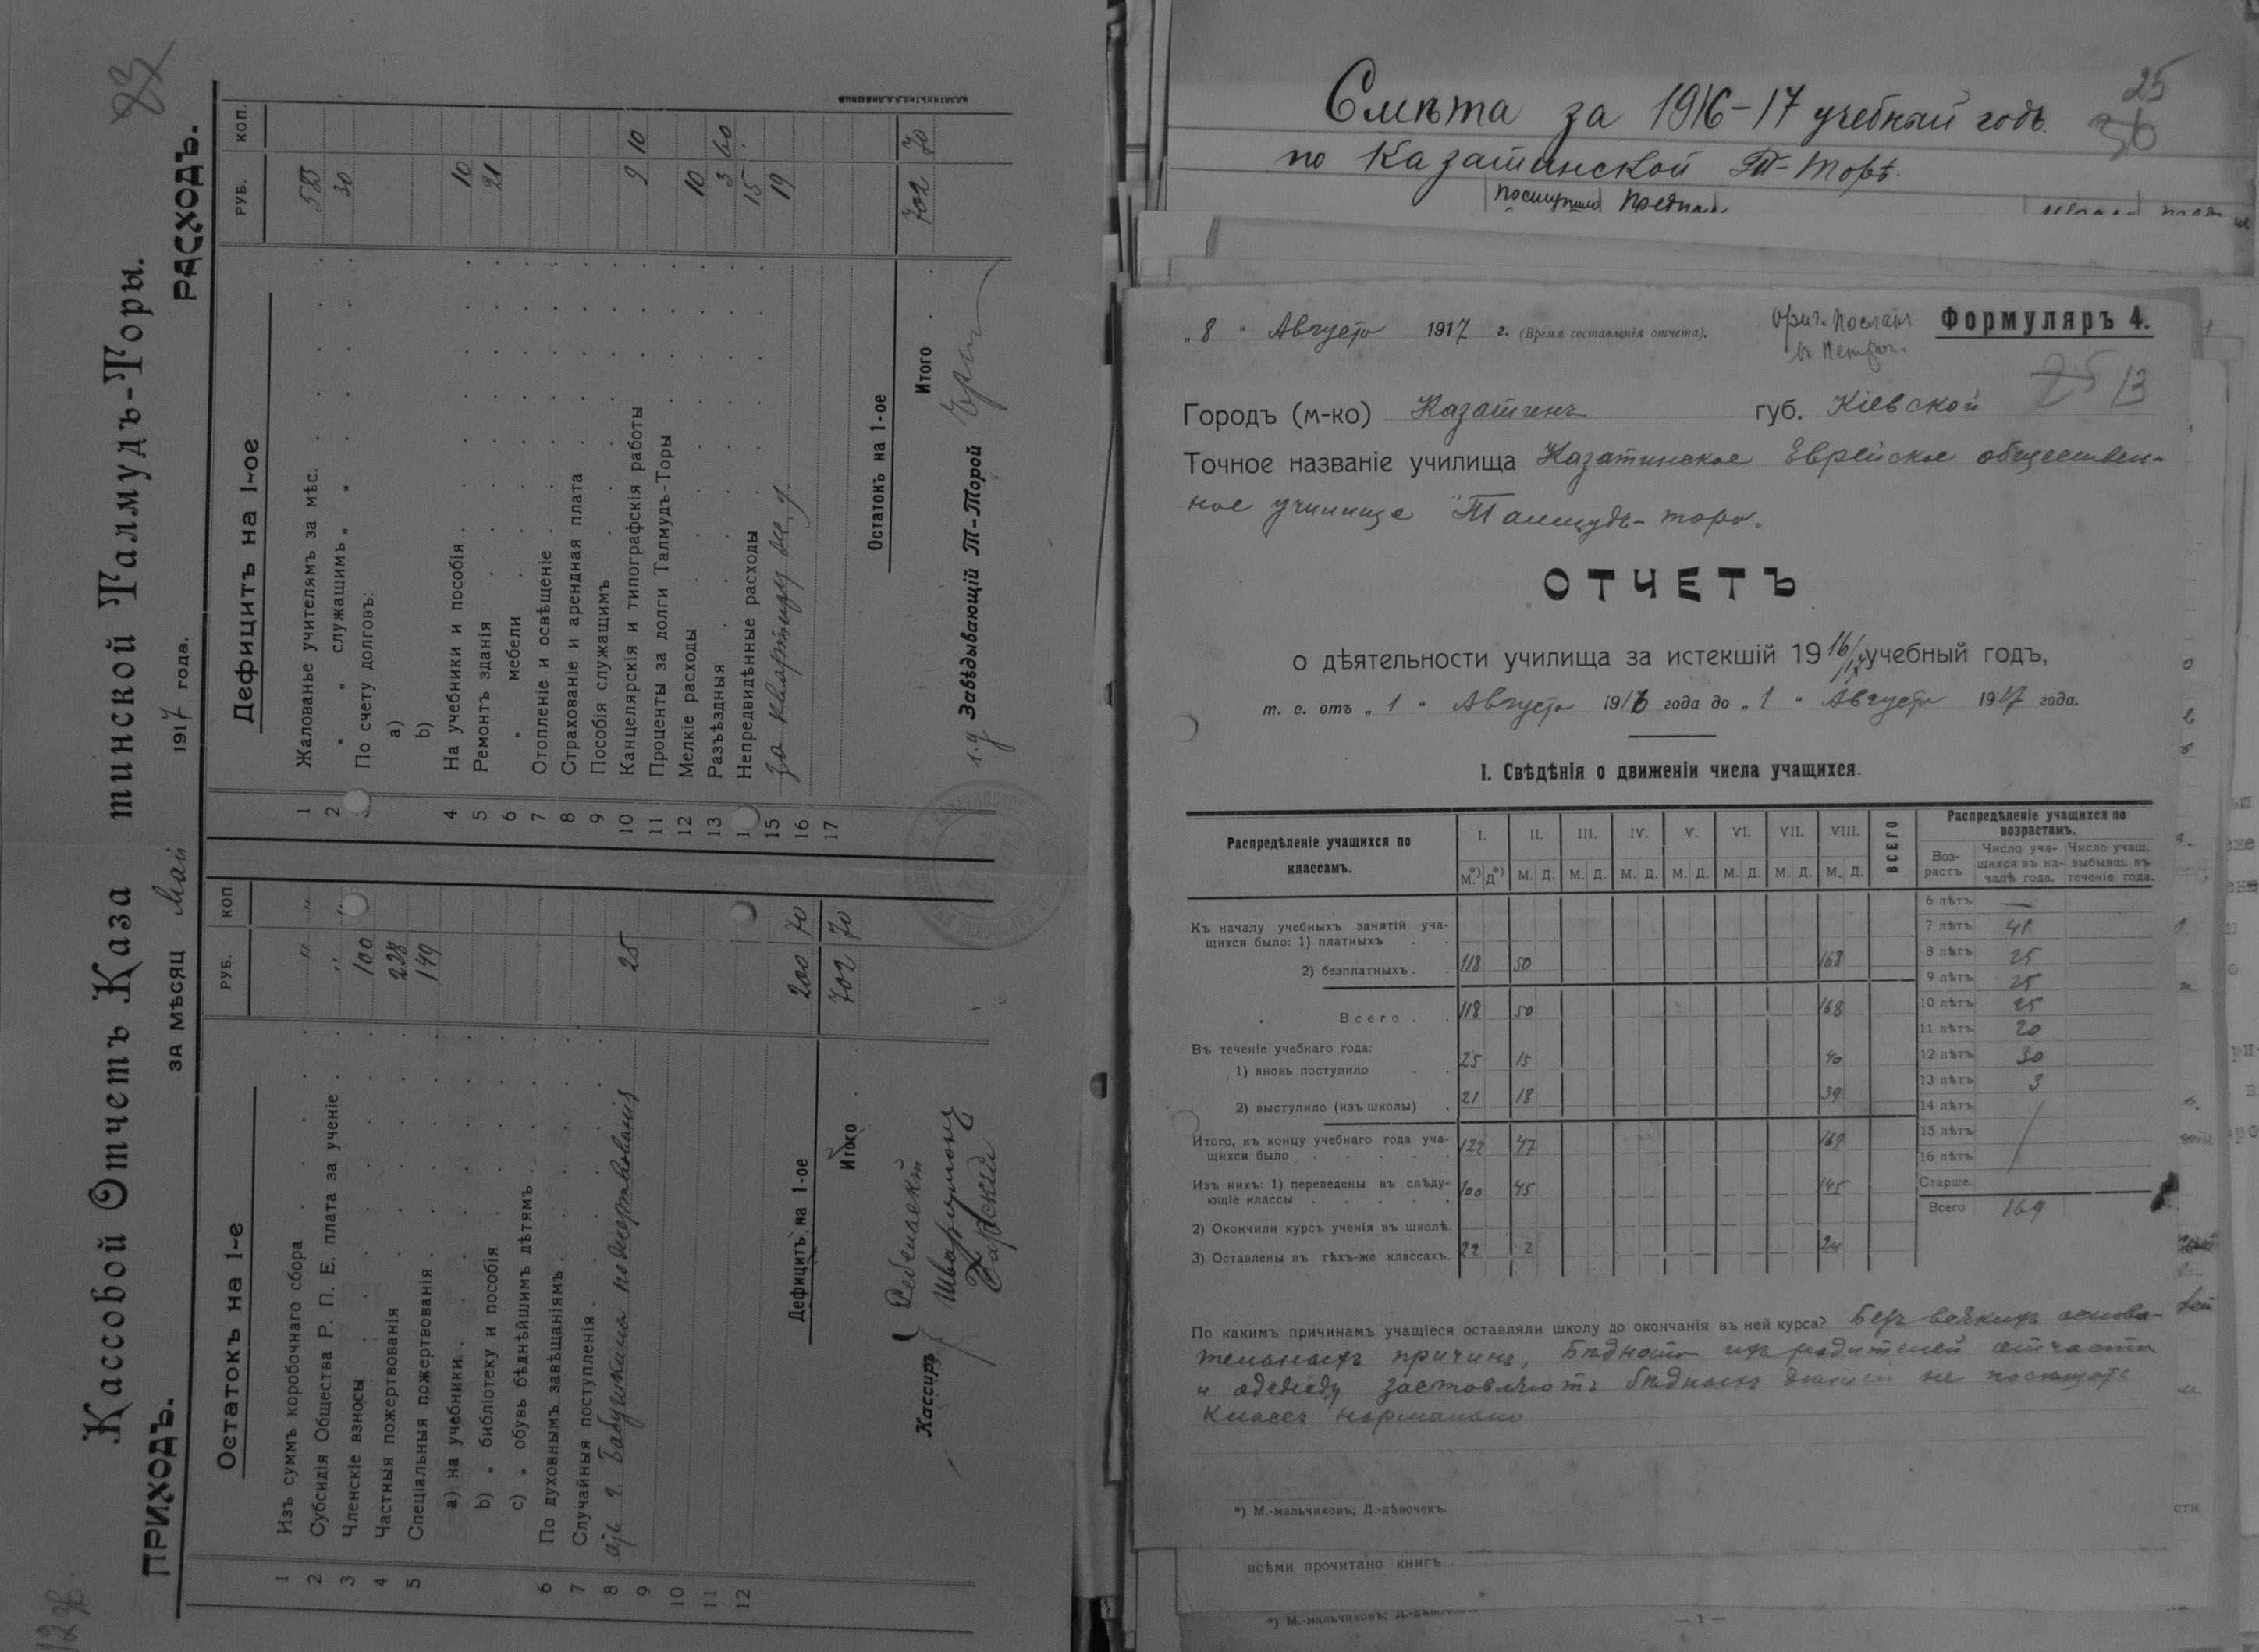 Кассовой Отчетъ Каза тинской Талмудъ-Торы.
за мѣсяц Май 1917 года.
83
ПРИХОДЪ.
РАСХОДЪ.
Остатокъ на 1-е
РУБ. КОП.
1 Изъ суммъ коробочнаго сбора " "
2 Субсидія Общества Р. П. Е. плата за ученіе " "
3 Членскіе взносы 100
4 Частныя пожертвованія 228
5 Спеціальныя пожертвованія 149
a) на учебники
b) „ библіотеку и пособія
c) „ обувь бѣднѣйшимъ дѣтямъ
6 По духовнымъ завѣщаніямъ
7 Случайныя поступленія
8 отъ г. Бабушкина пожертвованія 25
9
10
11
12
Дефицитъ на 1-ое 200 70
Итого 702 70
Кассиръ
Дефицитъ на 1-ое
РУБ. КОП.
1 Жалованье учителямъ за мѣс. 585
2 „ „ служащимъ „ „ 30
По счету долговъ:
a)
b)
4 На учебники и пособія 10
5 Ремонтъ зданія 21
6 „ мебели
7 Отопленіе и освѣщеніе
8 Страхованіе и арендная плата
9 Пособія служащимъ
10 Канцелярскія и типографскія работы 9 10
11 Проценты за долги Талмудъ-Торы
12 Мелкіе расходы 10
13 Разъѣздныя 3 60
1 Непредвидѣнные расходы 15
15 за квартиру 19
16
17
Остатокъ на 1-ое
Итого 702 70
Завѣдывающій Т-Торой
Смѣта за 1916-17 учебный годъ.
25
36
по Казатинской Т-Торѣ.
„ 8 " Августа 1917 г. (Время составленія отчета).
Формуляръ 4.
25 13
Городъ (м-ко) Казатинъ губ. Кіевской
Точное названіе училища Казатинское Еврейское обществен-
ное училище "Талмудъ-тора.
ОТЧЕТЪ
о дѣятельности училища за истекшій 1916/17 учебный годъ,
т. е. отъ „ 1 " Августа 1916 года до „ 1 " Августа 1917 года.
I. Свѣдѣнія о движеніи числа учащихся.
Распредѣленіе учащихся по классамъ.
I. II. III. IV. V. VI. VII. VIII. ВСЕГО
М.*) Д*) М. Д. М. Д. М. Д. М. Д. М. Д. М. Д. М. Д.
Къ началу учебныхъ занятій уча-
щихся было: 1) платныхъ
2) безплатныхъ 118 50 168
Всего 118 50 168
Въ теченіе учебнаго года:
1) вновь поступило 25 15 40
2) выступило (изъ школы) 21 18 39
Итого, къ концу учебнаго года уча-
щихся было 122 47 169
Изъ нихъ: 1) переведены въ слѣду-
ющіе классы 100 45 145
2) Окончили курсъ ученія въ школѣ.
3) Оставлены въ тѣхъ-же классахъ. 22 2 24
Распредѣленіе учащихся по возрастамъ.
Воз-растъ
Число уча-щихся въ на-чалѣ года.
Число учащ. выбывш. въ теченіе года.
6 лѣтъ —
7 лѣтъ 41
8 лѣтъ 25
9 лѣтъ 25
10 лѣтъ 25
11 лѣтъ 20
12 лѣтъ 30
13 лѣтъ 3
14 лѣтъ
15 лѣтъ
16 лѣтъ
Старше.
Всего 169
По какимъ причинамъ учащіеся оставляли школу до окончанія въ ней курса? Безъ всякихъ основа-
тельныхъ причинъ, Бѣдность ихъ родителей отчасти
и одежду заставляютъ бѣдныхъ дѣтей не посѣщать
классъ нормально
*) М.-мальчиковъ; Д.-дѣвочекъ.
всѣми прочитано книгъ
*) М.-мальчиковъ; Д.-дѣвочек
— 1 —